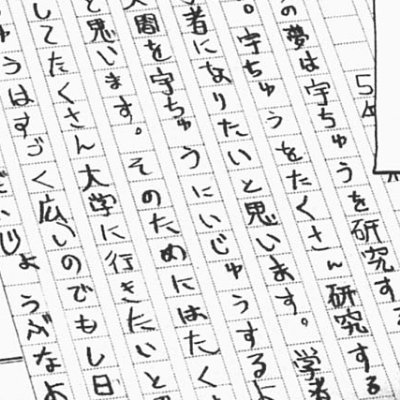 5年
の夢は宇ちゅうを研究する
。宇ちゅうをたくさん研究する
者になりたいと思います。学者
人間を宇ちゅうにいじゅうするよ
と思います。そのためにはたく
してたくさん大学に行きたいと
ゅうはすごく広いのでもし日
いじょうぶなよ